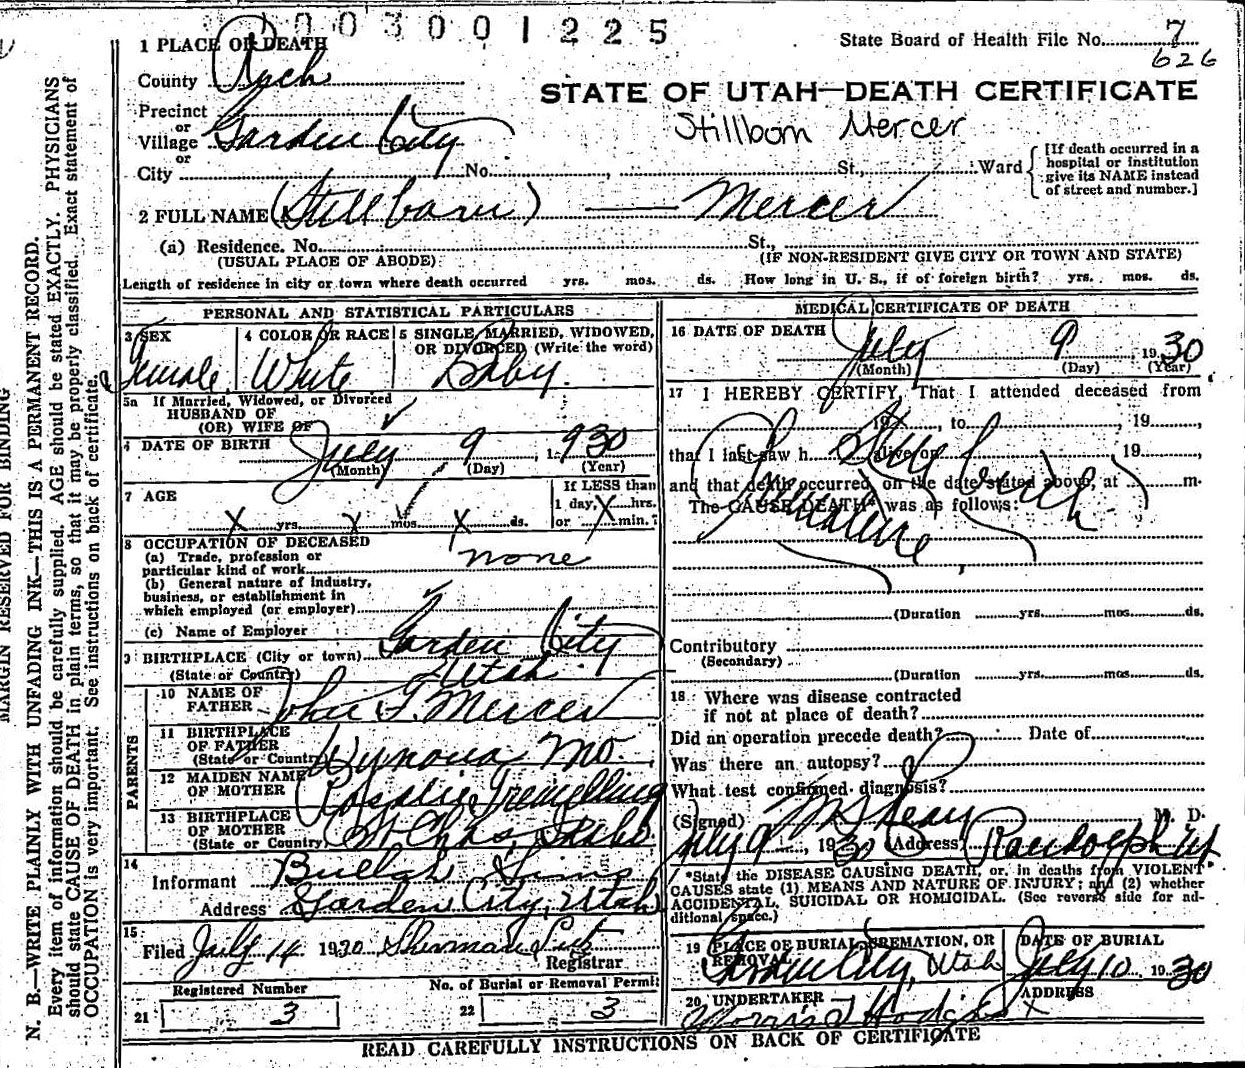 003001225
State Board of Health File No. 7
626
1 PLACE OF DEATH
County Rich
STATE OF UTAH—DEATH CERTIFICATE
Precinct
or
Village Garden City
or
City No. , St., Ward
Stillborn Mercer
[If death occurred in a
hospital or institution
give its NAME instead
of street and number.]
2 FULL NAME (Stillborn) — Mercer
(a) Residence. No. St.,
(USUAL PLACE OF ABODE) (IF NON-RESIDENT GIVE CITY OR TOWN AND STATE)
Length of residence in city or town where death occurred yrs. mos. ds. How long in U. S., if of foreign birth? yrs. mos. ds.
PERSONAL AND STATISTICAL PARTICULARS
3 SEX
Female
4 COLOR OR RACE
White
5 SINGLE, MARRIED, WIDOWED,
OR DIVORCED (Write the word)
Baby
5a If Married, Widowed, or Divorced
HUSBAND OF
(OR) WIFE OF
6 DATE OF BIRTH July 9 1930
(Month) (Day) (Year)
7 AGE
X yrs. X mos. X ds.
If LESS than
1 day, X hrs.
or min.?
8 OCCUPATION OF DECEASED
(a) Trade, profession or
particular kind of work none
(b) General nature of industry,
business, or establishment in
which employed (or employer)
(c) Name of Employer
9 BIRTHPLACE (City or town) Garden City
(State or Country) Utah
PARENTS
10 NAME OF
FATHER John F. Mercer
11 BIRTHPLACE
OF FATHER
(State or Country) Wynona Mo.
12 MAIDEN NAME
OF MOTHER Rosalie Tremelling
13 BIRTHPLACE
OF MOTHER
(State or Country) St Chas, Idaho
14
Informant Bullah Sims
Address Garden City, Utah
15
Filed July 14 1930 Sherman
Registrar
Registered Number
21 3
No. of Burial or Removal Permit
22 3
MEDICAL CERTIFICATE OF DEATH
16 DATE OF DEATH July 9 1930
(Month) (Day) (Year)
17 I HEREBY CERTIFY, That I attended deceased from
19 , to , 19 ,
that I last saw h alive on 19 ,
and that death occurred, on the date stated above, at m.
The CAUSE DEATH* was as follows:
Premature
(Duration yrs. mos. ds.
Contributory
(Secondary)
(Duration yrs. mos. ds.
18 Where was disease contracted
if not at place of death?
Did an operation precede death? Date of
Was there an autopsy?
What test confirmed diagnosis?
(Signed) M. D.
July 9, 1930 (Address) Randolph Ut
*State the DISEASE CAUSING DEATH, or, in deaths from VIOLENT
CAUSES state (1) MEANS AND NATURE OF INJURY; and (2) whether
ACCIDENTAL, SUICIDAL OR HOMICIDAL. (See reverse side for ad-
ditional space.)
19 PLACE OF BURIAL, CREMATION, OR
REMOVAL
Garden City, Utah
DATE OF BURIAL
July 10 1930
20 UNDERTAKER
Morris Hodges
ADDRESS
X
READ CAREFULLY INSTRUCTIONS ON BACK OF CERTIFICATE
MARGIN RESERVED FOR BINDING
N. B.—WRITE PLAINLY WITH UNFADING INK—THIS IS A PERMANENT RECORD.
Every item of information should be carefully supplied. AGE should be stated EXACTLY. PHYSICIANS
should state CAUSE OF DEATH in plain terms, so that it may be properly classified. Exact statement of
OCCUPATION is very important. See instructions on back of certificate.